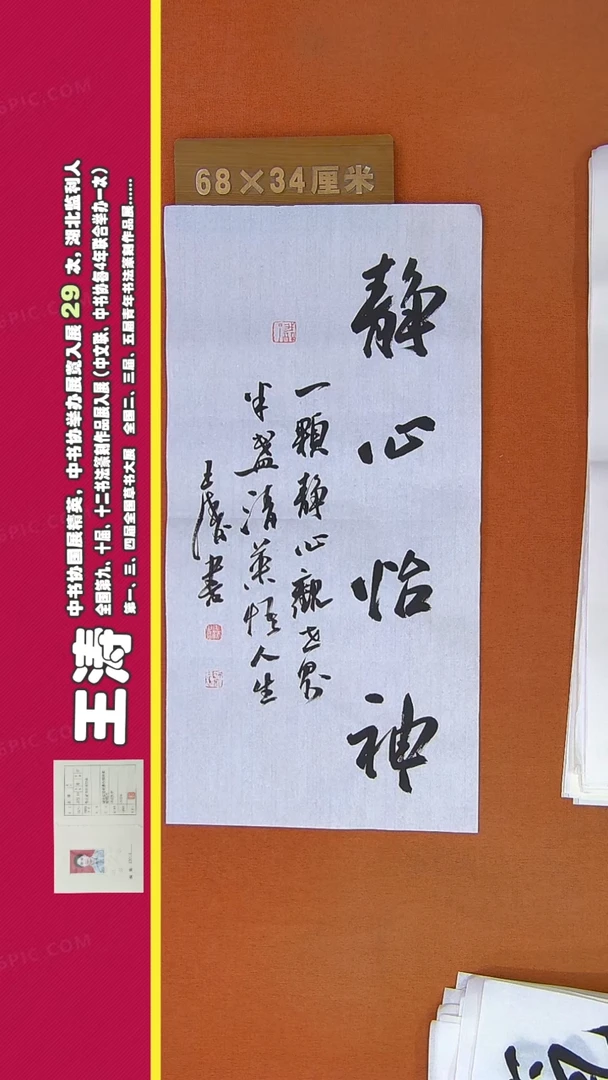 68×34厘米
静心怡神
一颗静心观世界
半盏清茶悟人生
王涛书
王涛
中书协国展精英,中书协举办展览入展 29 次,湖北监利人
全国第九、十届、十二书法篆刻作品展入展(中文联、中书协每4年联合举办一次)
第一、三、四届全国草书大展 全国二、三届、五届青年书法篆刻作品展......